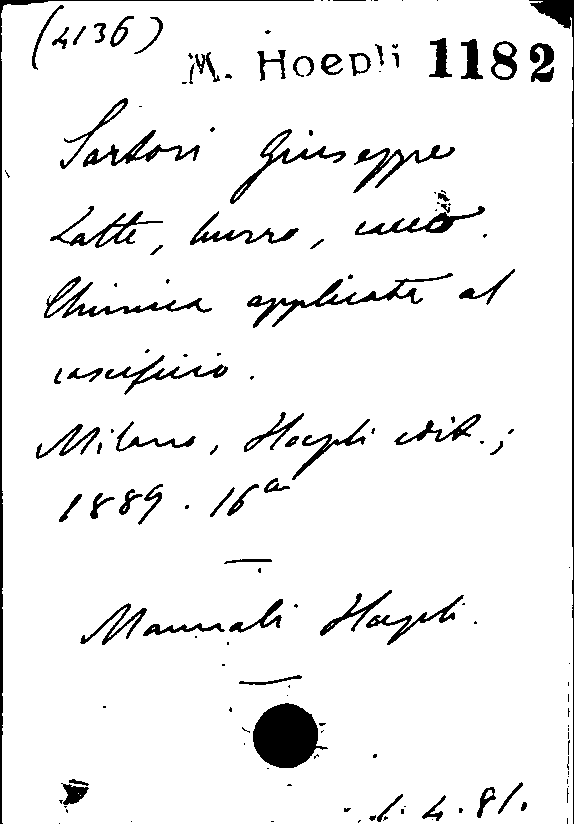 (4136)
M. Hoepli 1182
Sartori Giuseppe
Latte, burro, cacio.
Chimica applicata al
caseificio.
Milano, Hoepli edit.;
1889. 16°
Manuali Hoepli.
4.81.